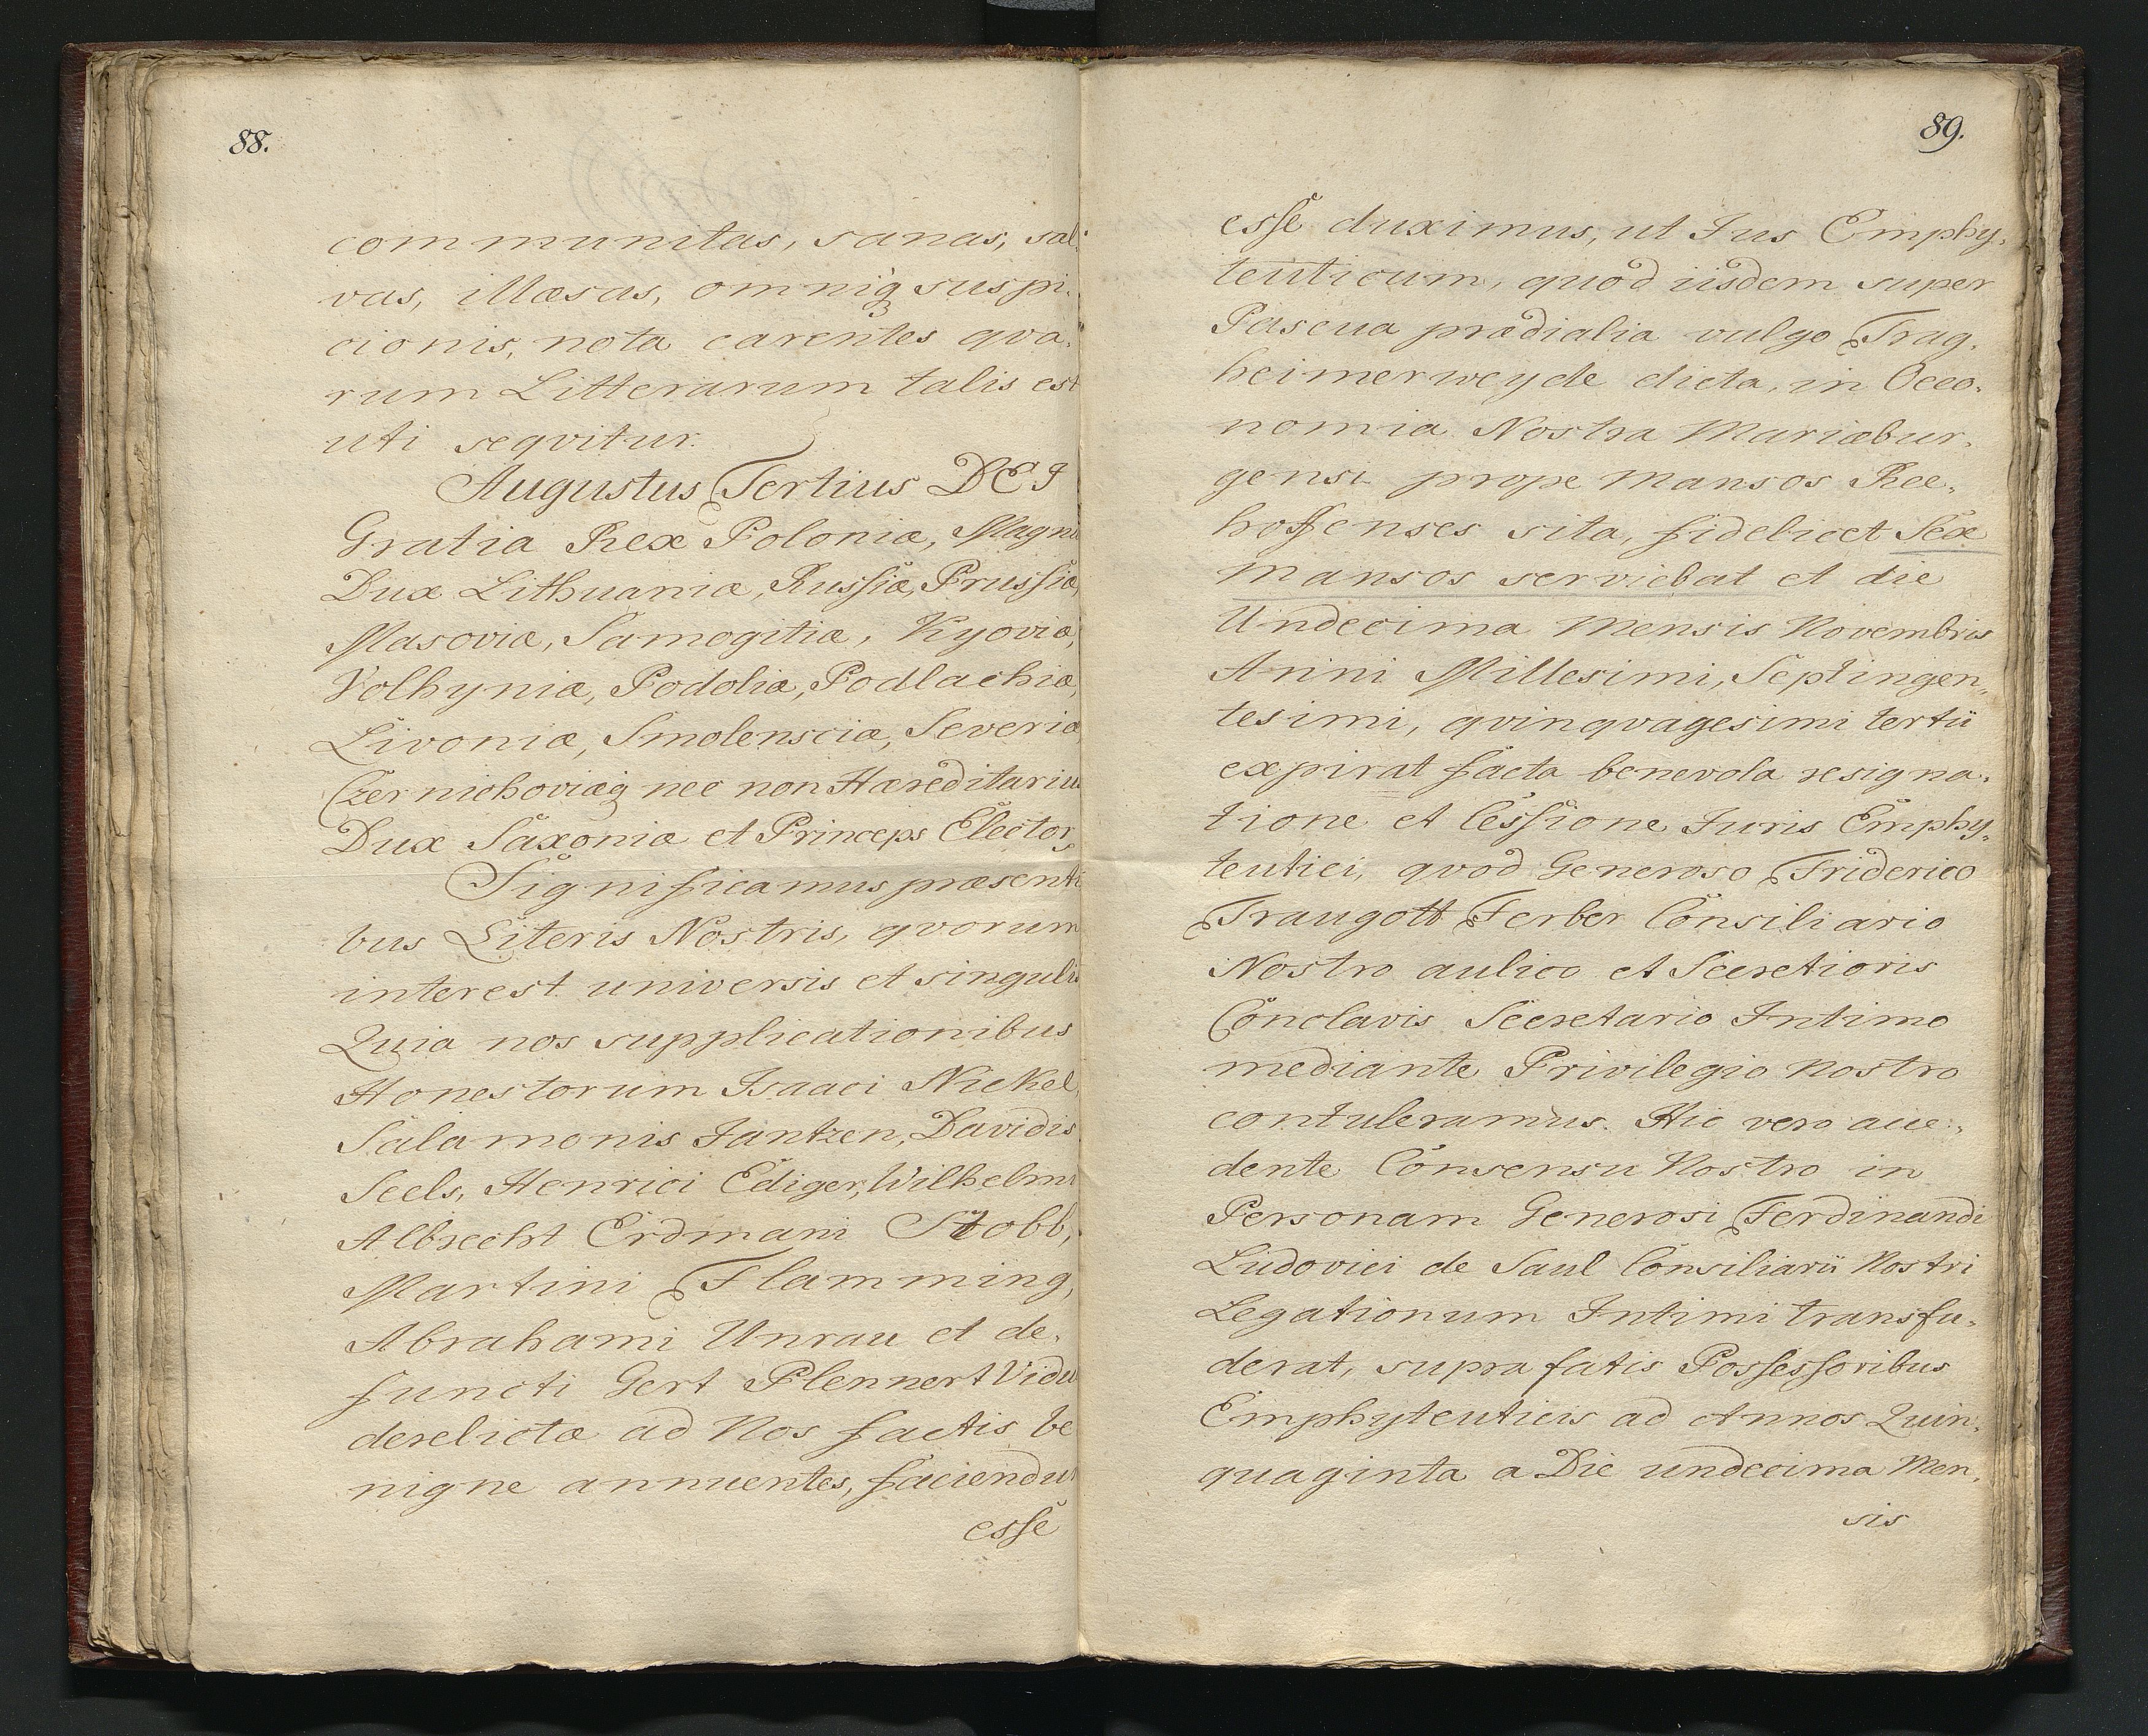 88.
communitas, sanas, sal„
vas, illæsas, omniq suspi„
cionis, nota carentes qva„
rum Litterarum talis est
uti seqvitur.
Augustus Tertius DEI
Gratia Rex Poloniæ, Magnu
Dux Lithuaniæ, Russiæ, Prussiæ,
Masoviæ, Samogitiæ, Kyoviæ,
Volhyniæ, Podoliæ, Podlachiæ,
Livoniæ, Smolensciæ, Severiæ,
Czernichoviæq nec non Hæreditariu
Dux Saxoniæ et Princeps Elector,
Significamus præsenti
bus Literis Nostris, qvorum
interest universis et singulis
Quia nos supplicationibus
Honestorum Isaaci Nickel,
Salamonis Jantzen, Davidis
Seels, Henrici Ediger, Wilhelmi
Albrecht Erdmani Stobb,
Martini Flamming,
Abrahami Unrau et de„
functi Gert Plennert Vidu
derelictæ ad Nos factis be
nigne annuentes, faciendu
esse
89.
esse duximus, ut Jus Emphy„
teuticum, quod iisdem super
Pascua prædialia vulgo Trag„
heimerweyde dicta, in Oeco„
nomia Nostra Mariæbur„
gensi prope Mansos Ree„
hoffenses sita, fidelicet Sex
Mansos serviebat et die
Undecima Mensis Novembris
Anni Millesimi, Septingen„
tesimi, qvinqvagesimi tertii
expirat facta benevola resigna„
tione et Cessione Juris Emphy„
teutici, qvod Generoso Friderico
Traugott Ferber Consiliario
Nostro aulico et Secretioris
Conclavis Secretario Intimo
mediante Privilegio Nostro
contuleramus. Hic vero aue„
dente Consensu Nostro in
Personam Generosi Ferdinandi
Ludovici de Saul Consiliarii Nostri
Legationum Intimi transfu„
derat, supra fatis Possessoribus
Emphyteuticis ad Annos Quin„
quaginta a Die undecima Men„
sis